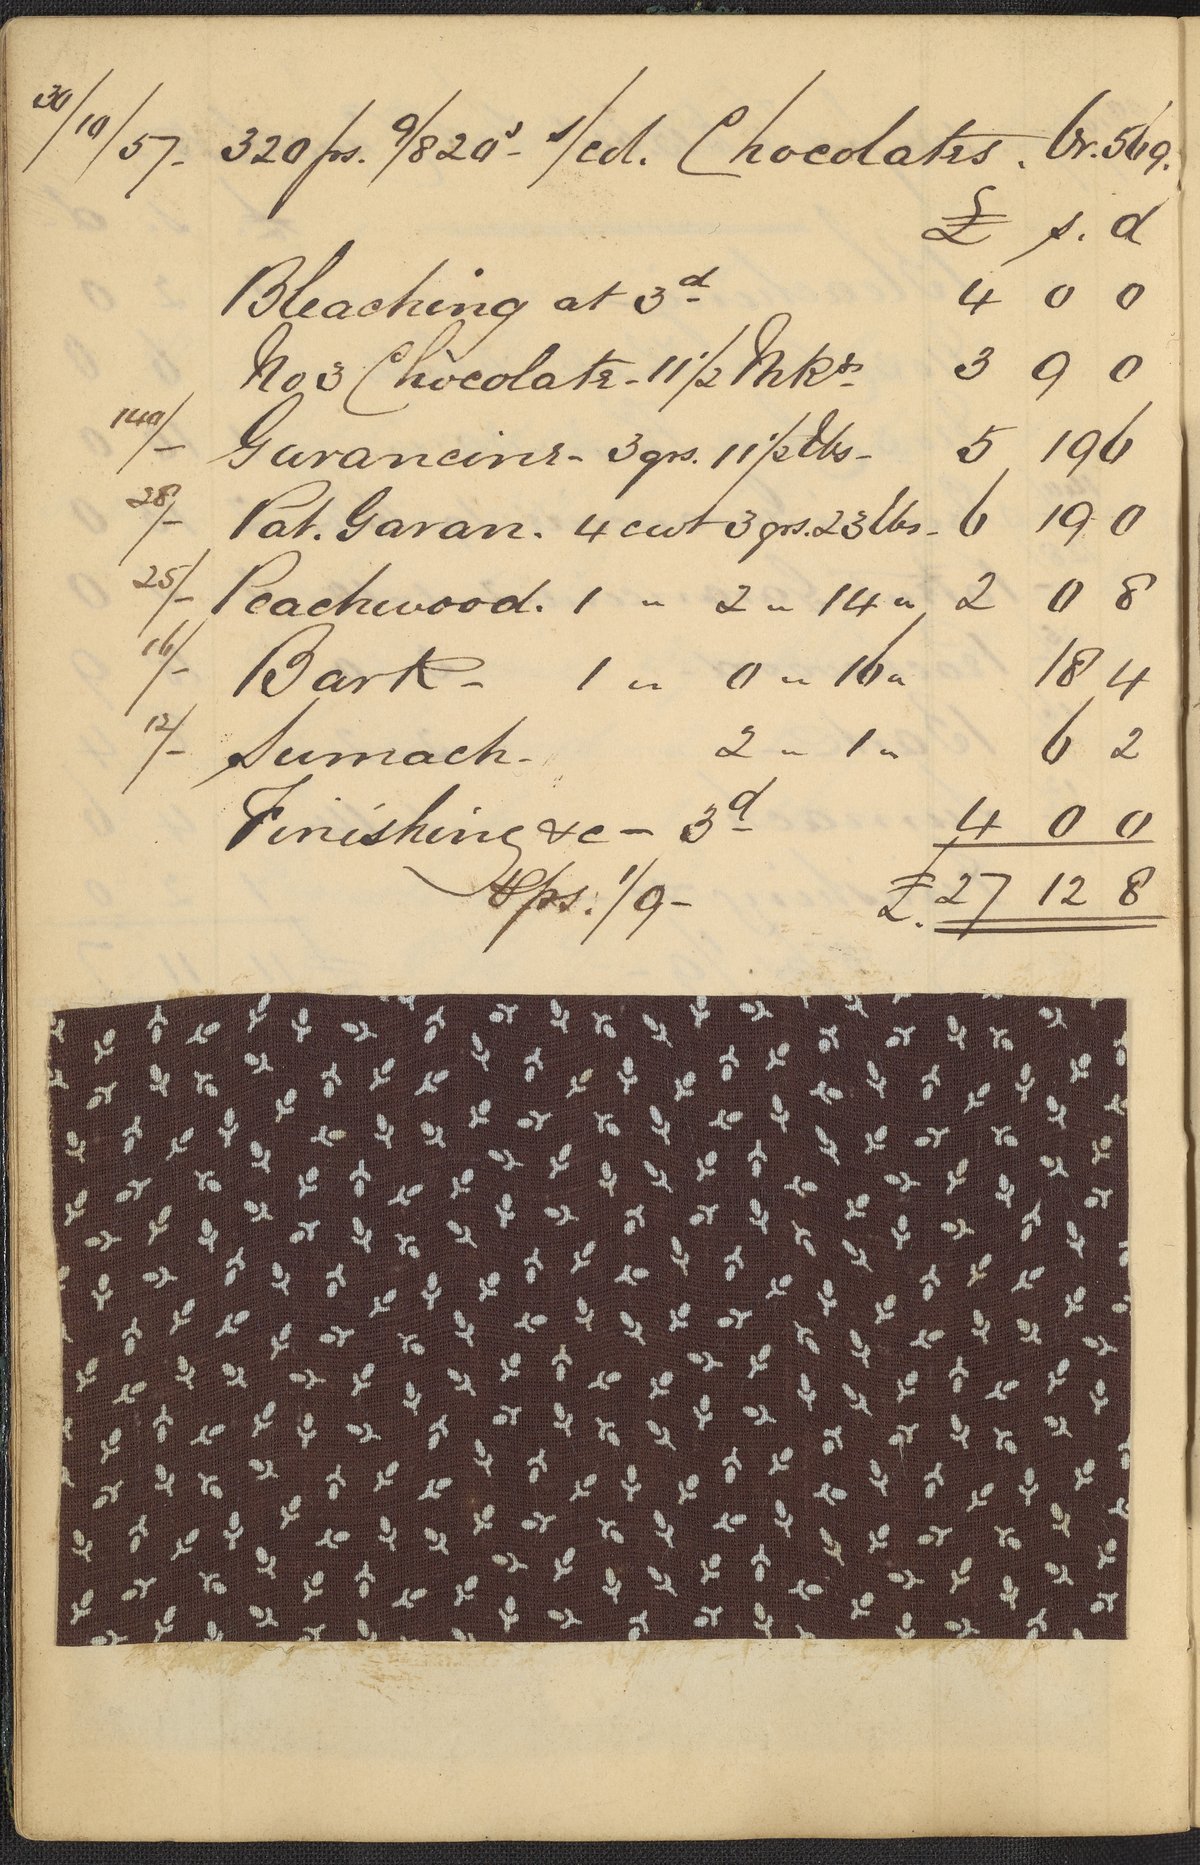 30/10/57- 320 ps. 9/8 20s- 1/cd. Chocolates. Gr. 569.
£ s. d
Bleaching at 3d 4 0 0
No 3 Chocolate - 11 1/2 Mks- 3 9 0
140/- Garancine - 3 qrs. 11 1/2 lbs- 5 19 6
28/- Pat. Garan. 4 cwt 3 qrs. 23 lbs- 6 19 0
25/- Peachwood. 1 " 2 " 14 " 2 0 8
16/- Bark - 1 " 0 " 16 " 18 4
12/- Sumach. 2 " 1 " 6 2
Finishing &c - 3d 4 0 0
ps. 1/9- £. 27 12 8